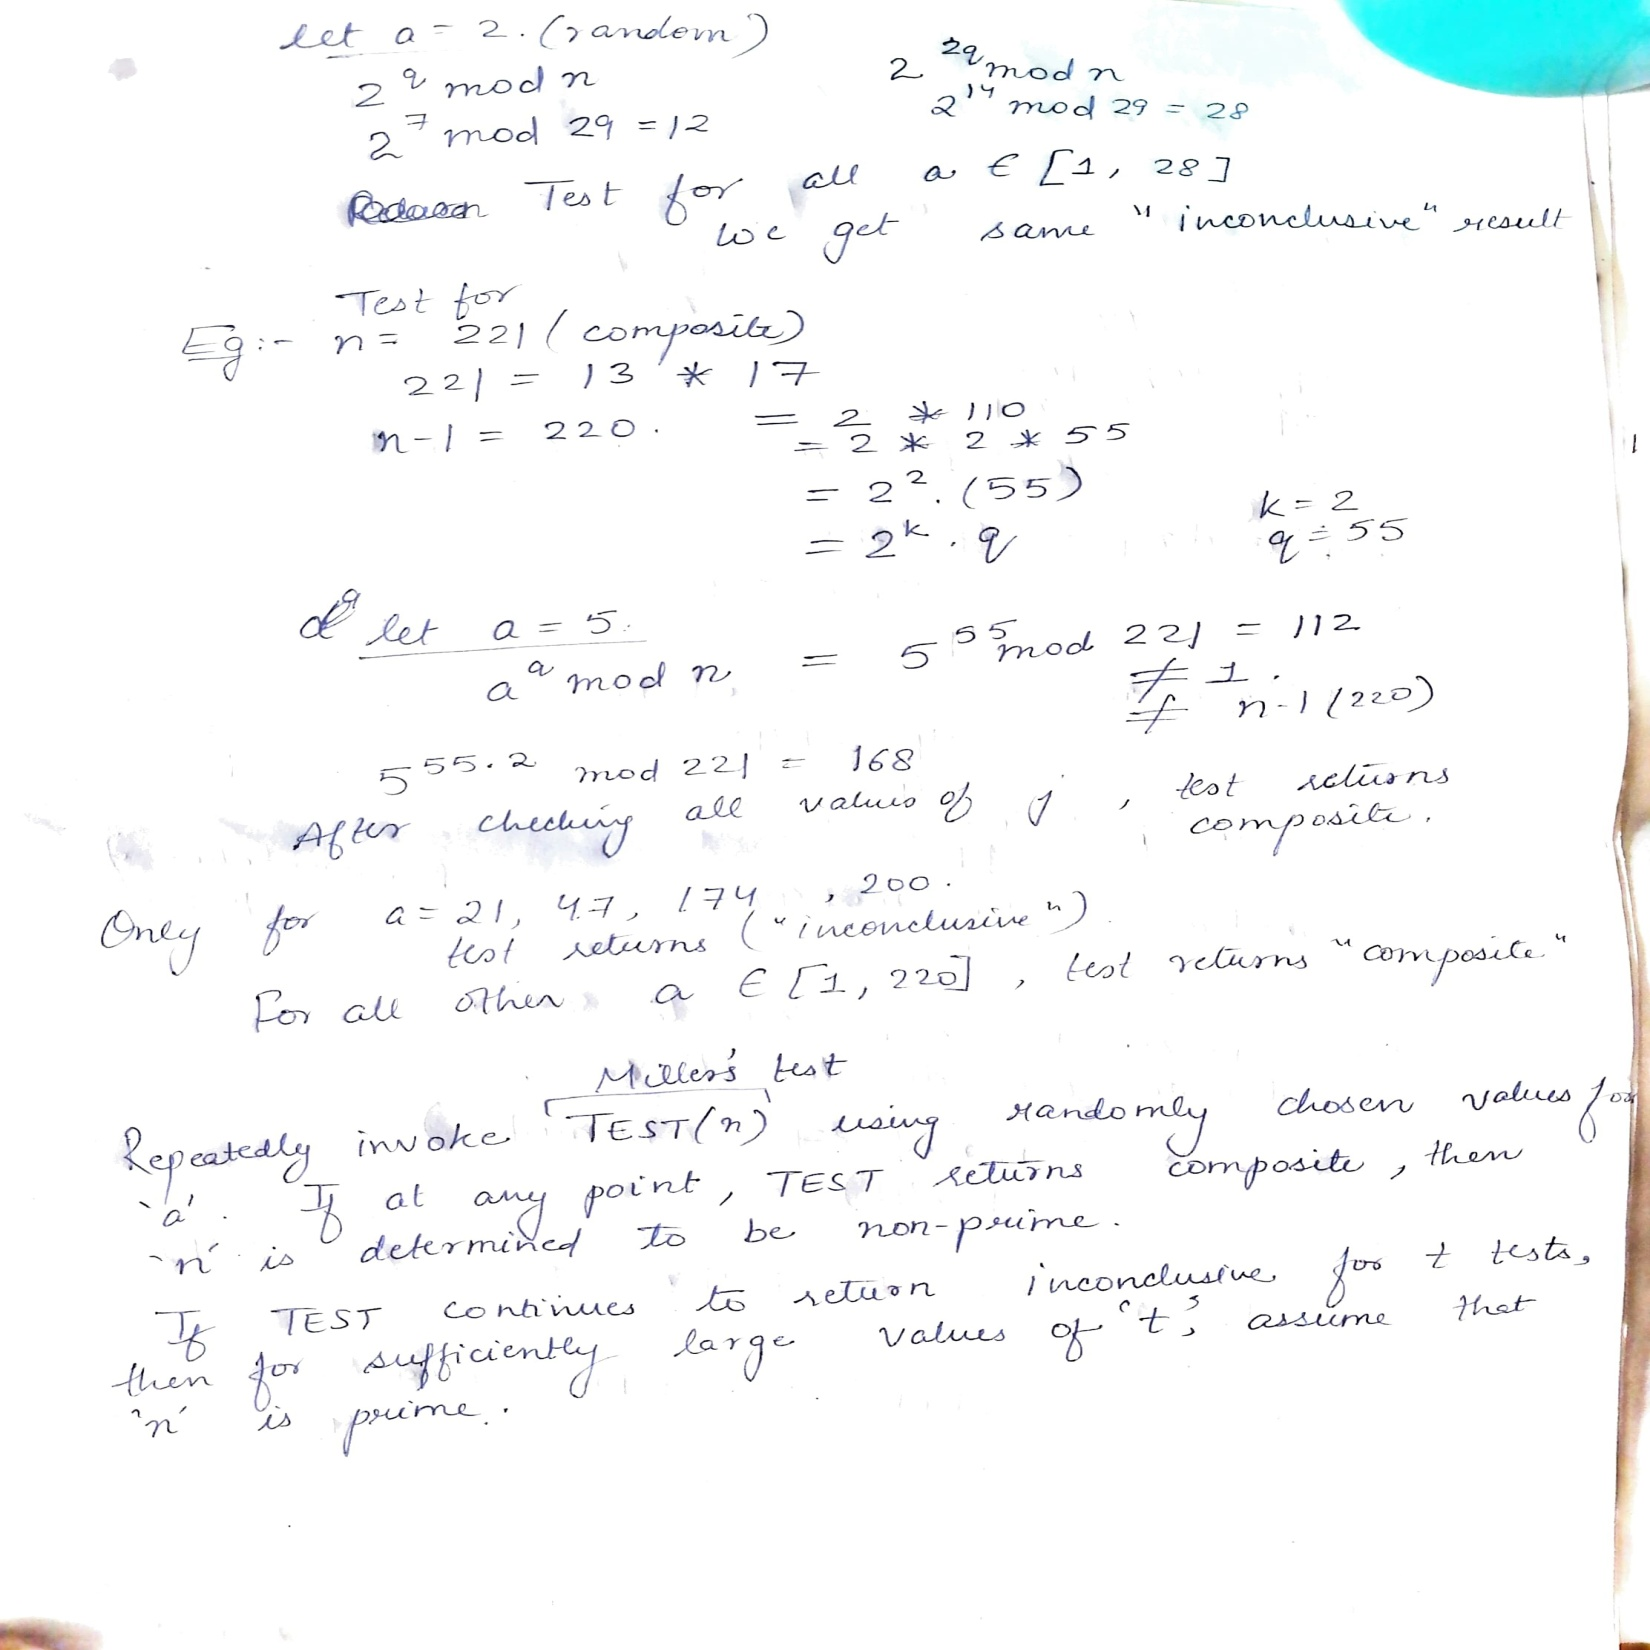 let a = 2. (random)
2^q mod n
2^{2q} mod n
2^7 mod 29 = 12
2^{14} mod 29 = 28
Test for all a ∈ [1, 28]
we get same "inconclusive" result
Test for
Eg:- n = 221 (composite)
221 = 13 * 17
n-1 = 220. = 2 * 110
= 2 * 2 * 55
= 2^2. (55)
= 2^k . q
k = 2
q = 55
let a = 5.
a^q mod n = 5^{55} mod 221 = 112
≠ 1.
≠ n-1 (220)
5^{55.2} mod 221 = 168
After checking all values of j, test returns composite.
Only for a = 21, 47, 174, 200.
test returns ("inconclusive")
For all other a ∈ [1, 220], test returns "composite"
Miller's test
Repeatedly invoke TEST(n) using randomly chosen values for
'a'. If at any point, TEST returns composite, then
'n' is determined to be non-prime.
If TEST continues to return inconclusive for t tests,
then for sufficiently large values of 't', assume that
'n' is prime.